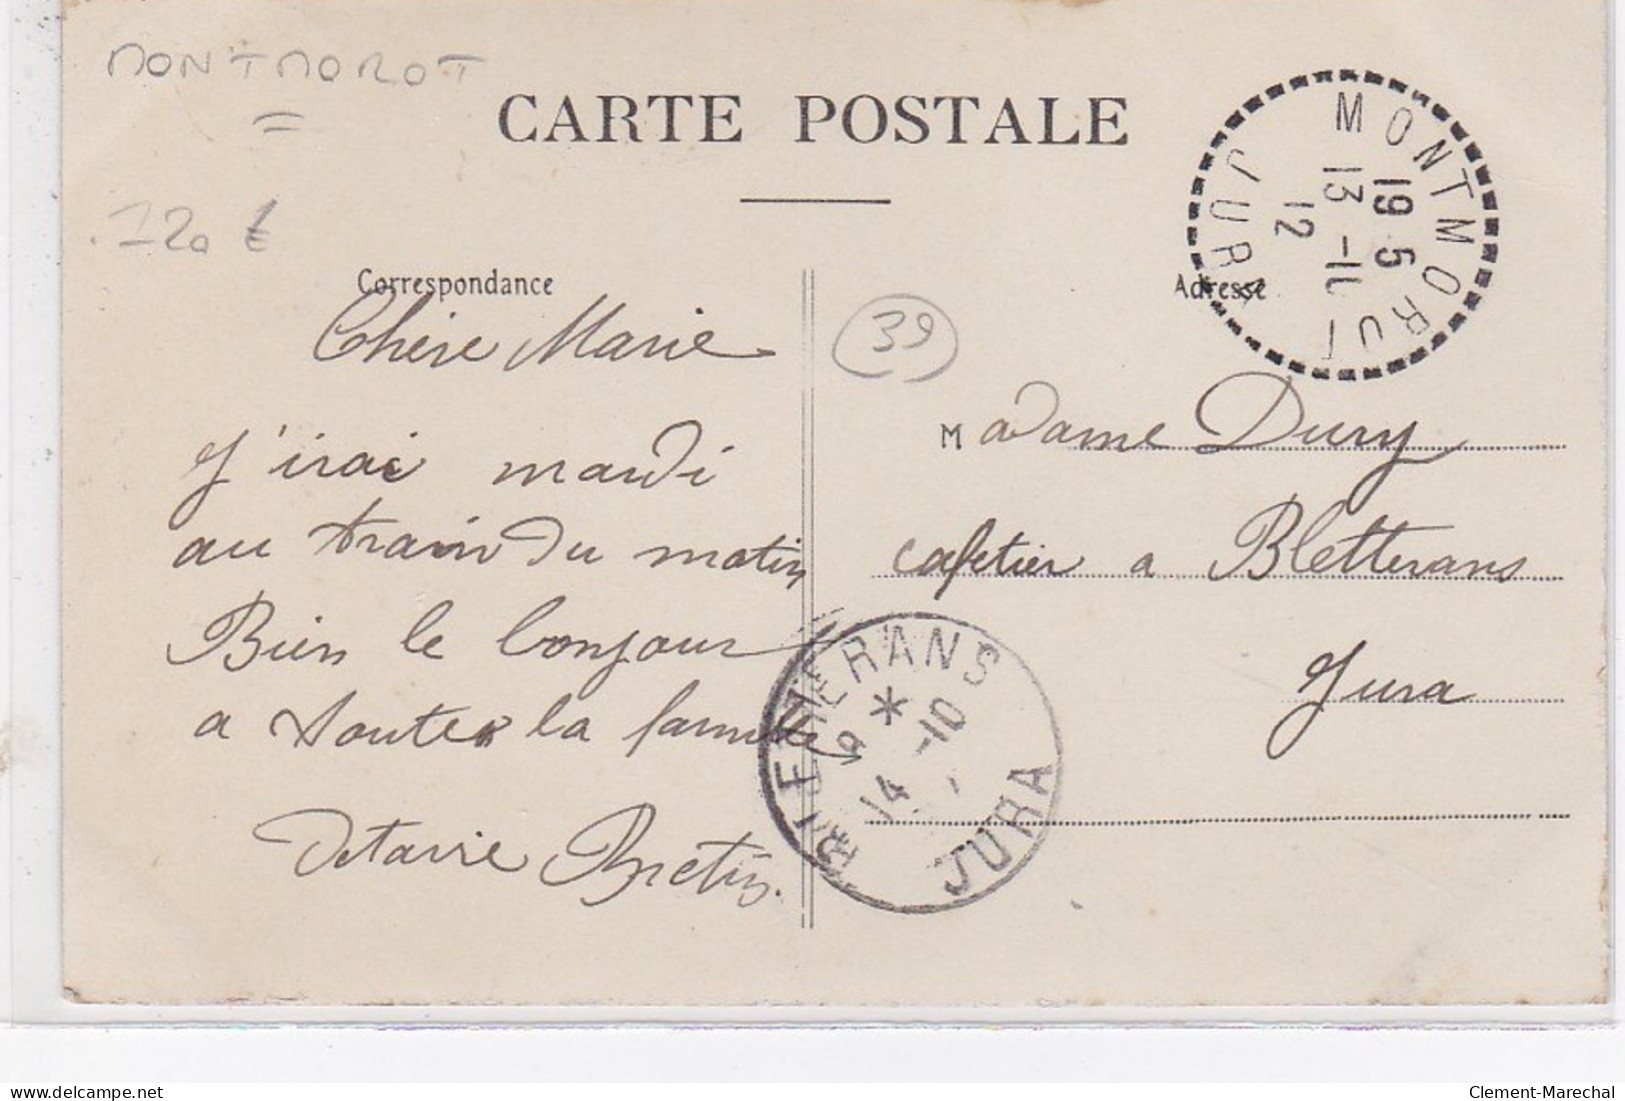 MONTMOROT
120 €
CARTE POSTALE
MONTMOROT
19 5
13 -10
12
JURA
Correspondance
Adresse
39
Chère Marie
J'irai mardi
au train du matin
Bien le bonjour
a toute la famille
Octavie Bretin.
Madame Dury
cafetier a Bletterans
Jura
BLETTERANS
*
14 -10
JURA
www.delcampe.net
Clement-Marechal